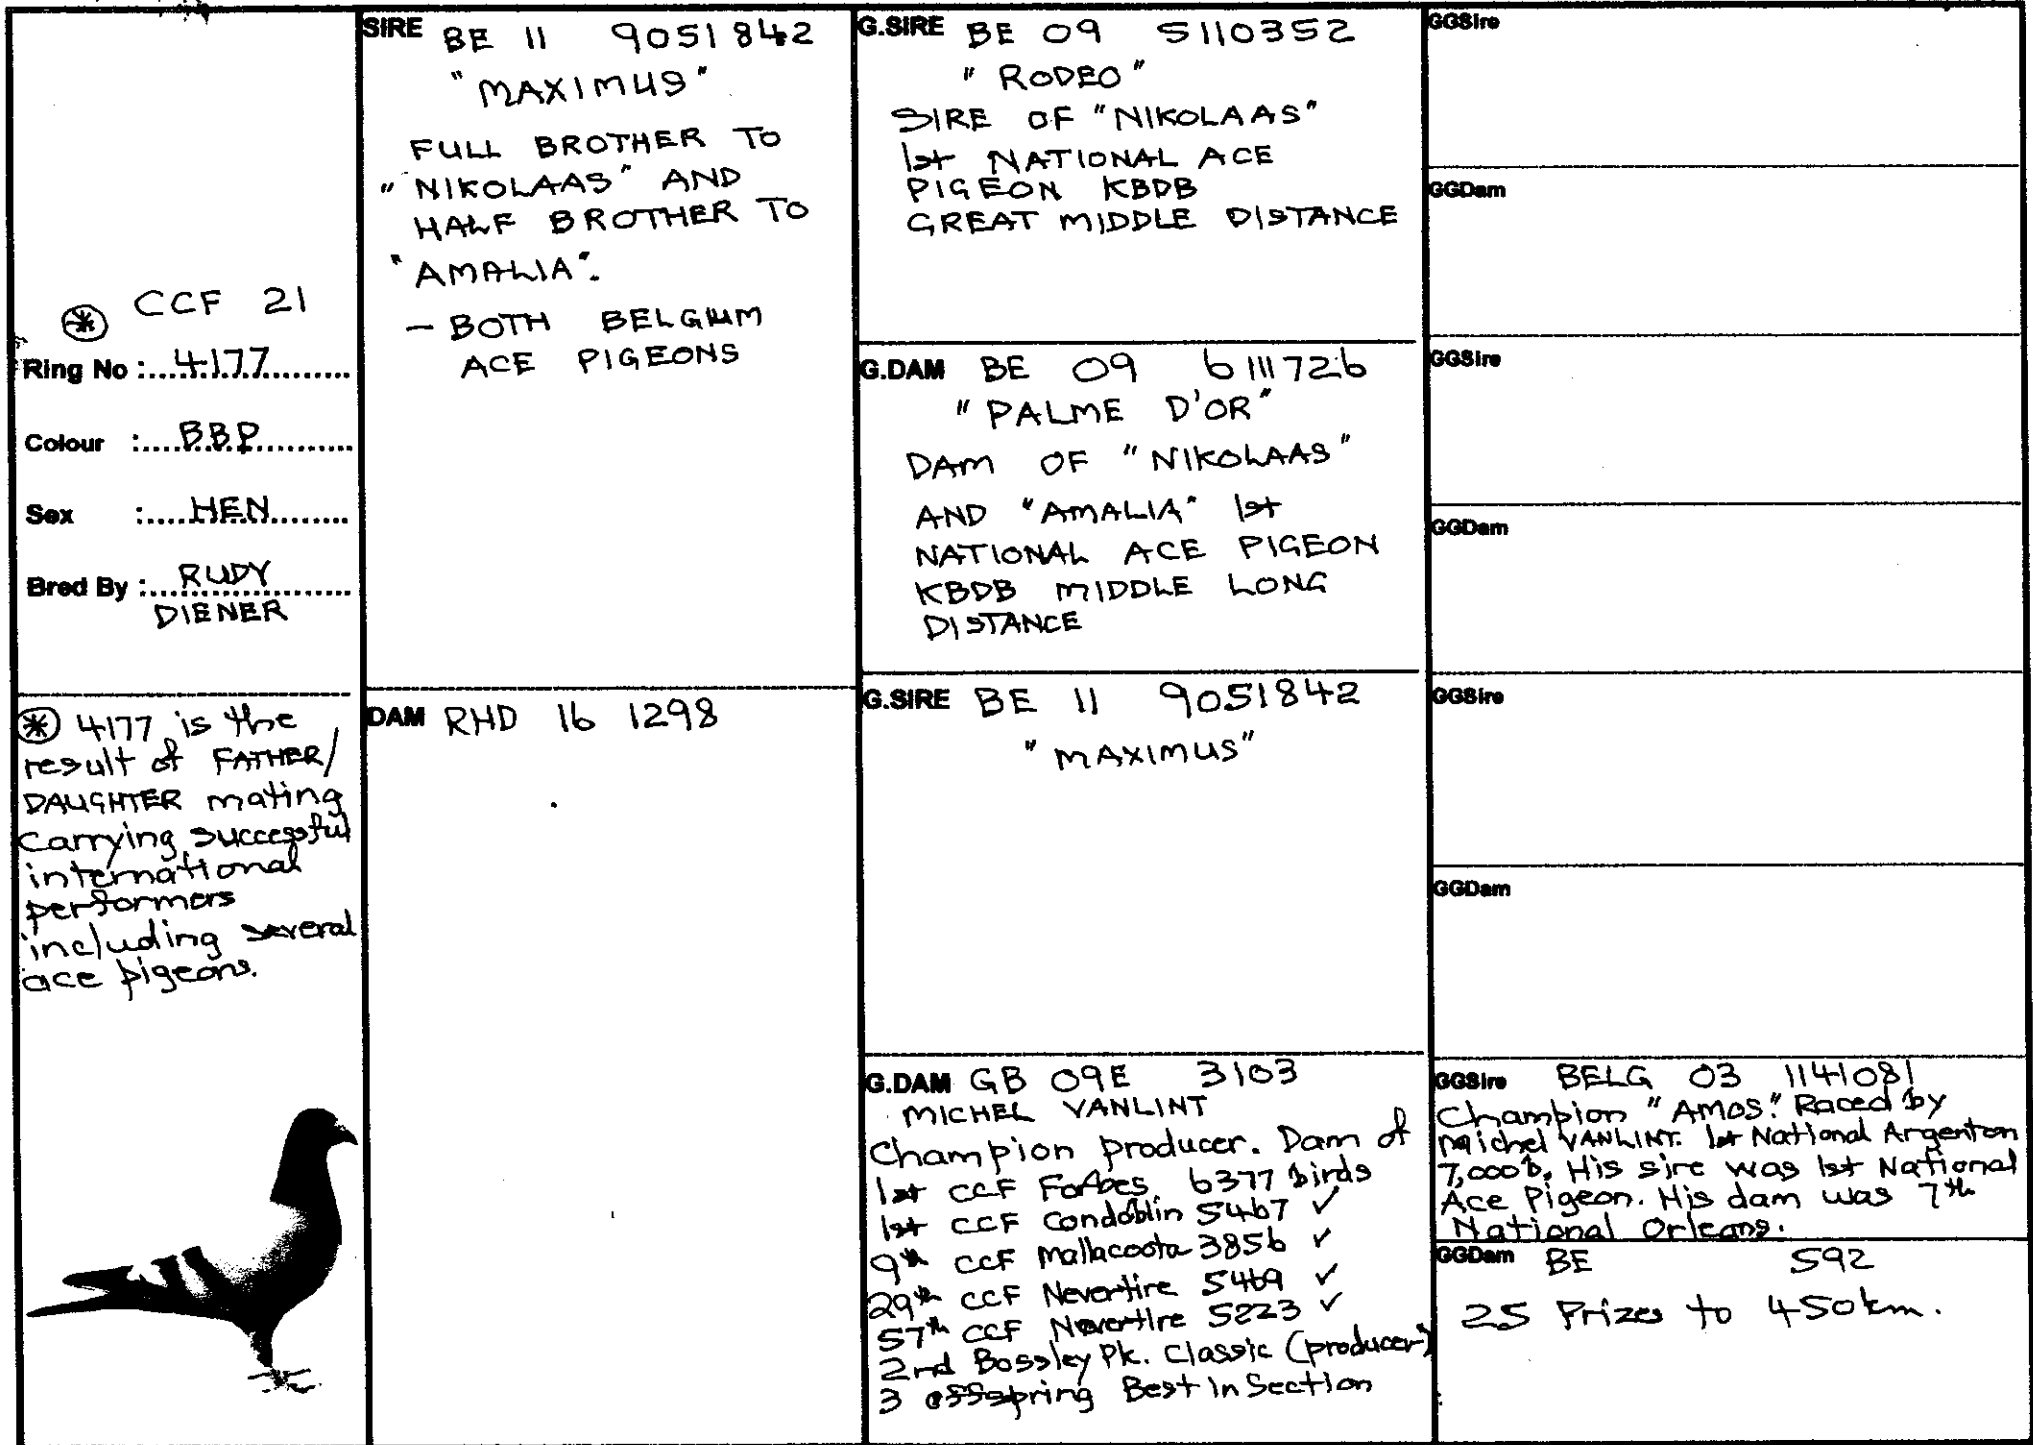 CCF 21
Ring No : 4177
Colour : BBP
Sex : HEN
Bred By : RUDY
DIENER
4177 is the
result of FATHER/
DAUGHTER mating
carrying successful
international
performers
including several
ace pigeons.
SIRE BE 11 9051842
"MAXIMUS"
FULL BROTHER TO
"NIKOLAAS" AND
HALF BROTHER TO
"AMALIA".
- BOTH BELGIUM
ACE PIGEONS
DAM RHD 16 1298
G.SIRE BE 09 5110352
"RODEO"
SIRE OF "NIKOLAAS"
1st NATIONAL ACE
PIGEON KBDB
GREAT MIDDLE DISTANCE
G.DAM BE 09 6111726
"PALME D'OR"
DAM OF "NIKOLAAS"
AND "AMALIA" 1st
NATIONAL ACE PIGEON
KBDB MIDDLE LONG
DISTANCE
G.SIRE BE 11 9051842
"MAXIMUS"
G.DAM GB 09E 3103
MICHEL VANLINT
Champion producer. Dam of
1st CCF Forbes 6377 birds
1st CCF Condoblin 5467 ✓
9th CCF Mallacoota 3856 ✓
29th CCF Nevertire 5469 ✓
57th CCF Nevertire 5223 ✓
2nd Bossley Pk. Classic (producer)
3 offspring Best in Section
GGSire
GGDam
GGSire
GGDam
GGSire
GGDam
GGSire BELG 03 1141081
Champion "AMOS". Raced by
Michel VANLINT. 1st National Argenton
7,000b. His sire was 1st National
Ace Pigeon. His dam was 7th
National Orleans.
GGDam BE 592
25 Prizes to 450km.